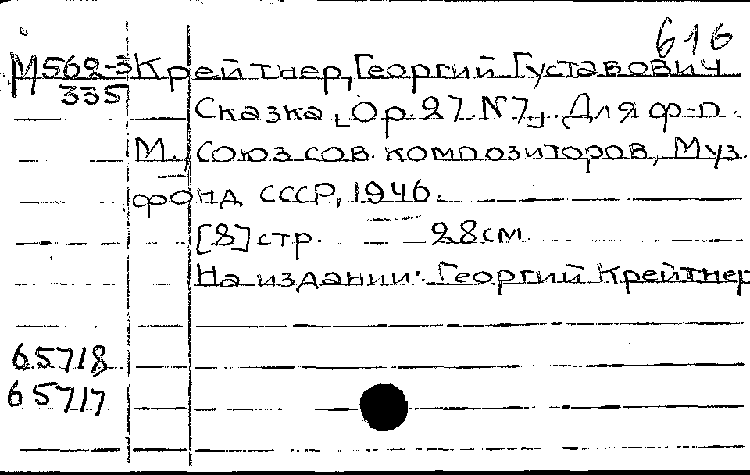 616
М562-3 Крейтнер, Георгий Густавович
335
Сказка, Ор. 27 N7. Для ф-п.
М., Союз сов. композиторов, Муз.
фонд СССР, 1946.
[8] стр. 28 см.
На издании: Георгий Крейтнер
65718
65717